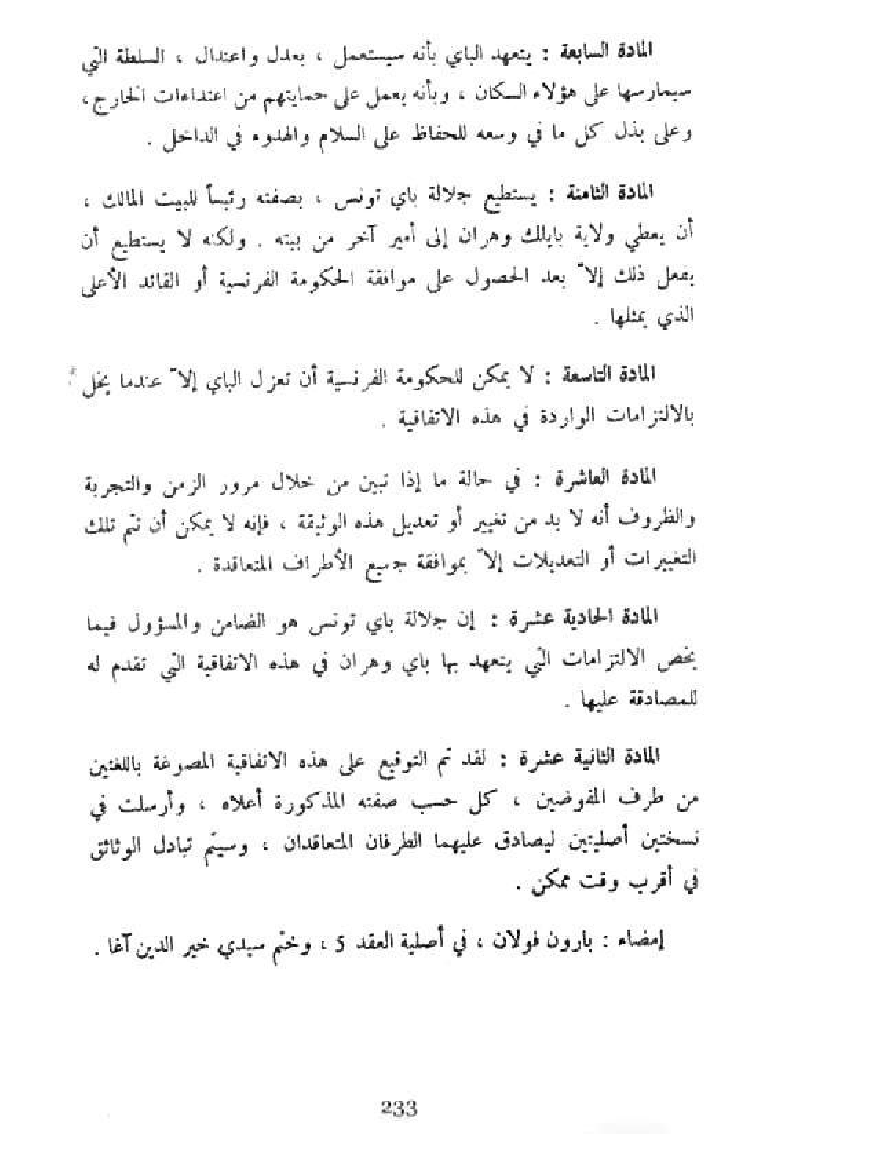 المادة السابعة : يتعهد الباي بأنه سيستعمل ، بعدل واعتدال ، السلطة التي
سيمارسها على هؤلاء السكان ، وبأنه يعمل على حمايتهم من اعتداءات الخارج،
وعلى بذل كل ما في وسعه للحفاظ على السلام والهدوء في الداخل .
المادة الثامنة : يستطيع جلالة باي تونس ، بصفته رئيساً للبيت المالك ،
أن يعطي ولاية بايلك وهران إلى أمير آخر من بيته . ولكنه لا يستطيع أن
يفعل ذلك إلاّ بعد الحصول على موافقة الحكومة الفرنسية أو القائد الأعلى
الذي يمثلها .
المادة التاسعة : لا يمكن للحكومة الفرنسية أن تعزل الباي إلاّ عندما يخل
بالالتزامات الواردة في هذه الاتفاقية .
المادة العاشرة : في حالة ما إذا تبين من خلال مرور الزمن والتجربة
والظروف أنه لا بد من تغيير أو تعديل هذه الوثيقة ، فإنه لا يمكن أن تتم تلك
التغييرات أو التعديلات إلاّ بموافقة جميع الأطراف المتعاقدة .
المادة الحادية عشرة : إن جلالة باي تونس هو الضامن والمسؤول فيما
يخص الالتزامات التي يتعهد بها باي وهران في هذه الاتفاقية التي تقدم له
للمصادقة عليها .
المادة الثانية عشرة : لقد تم التوقيع على هذه الاتفاقية المصوغة باللغتين
من طرف المفوضين ، كل حسب صفته المذكورة أعلاه ، وأرسلت في
نسختين أصليتين ليصادق عليهما الطرفان المتعاقدان ، وسيتم تبادل الوثائق
في أقرب وقت ممكن .
إمضاء : بارون فولان ، في أصلية العقد 5 ، وختم سيدي خير الدين آغا .
233